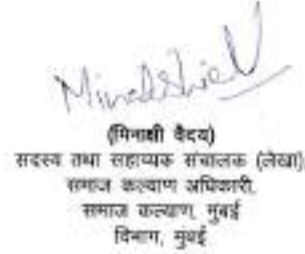 (मिनाक्षी वैदय)
सदस्य तथा सहाय्यक संचालक (लेखा)
समाज कल्याण अधिकारी,
समाज कल्याण, मुंबई
विभाग, मुंबई